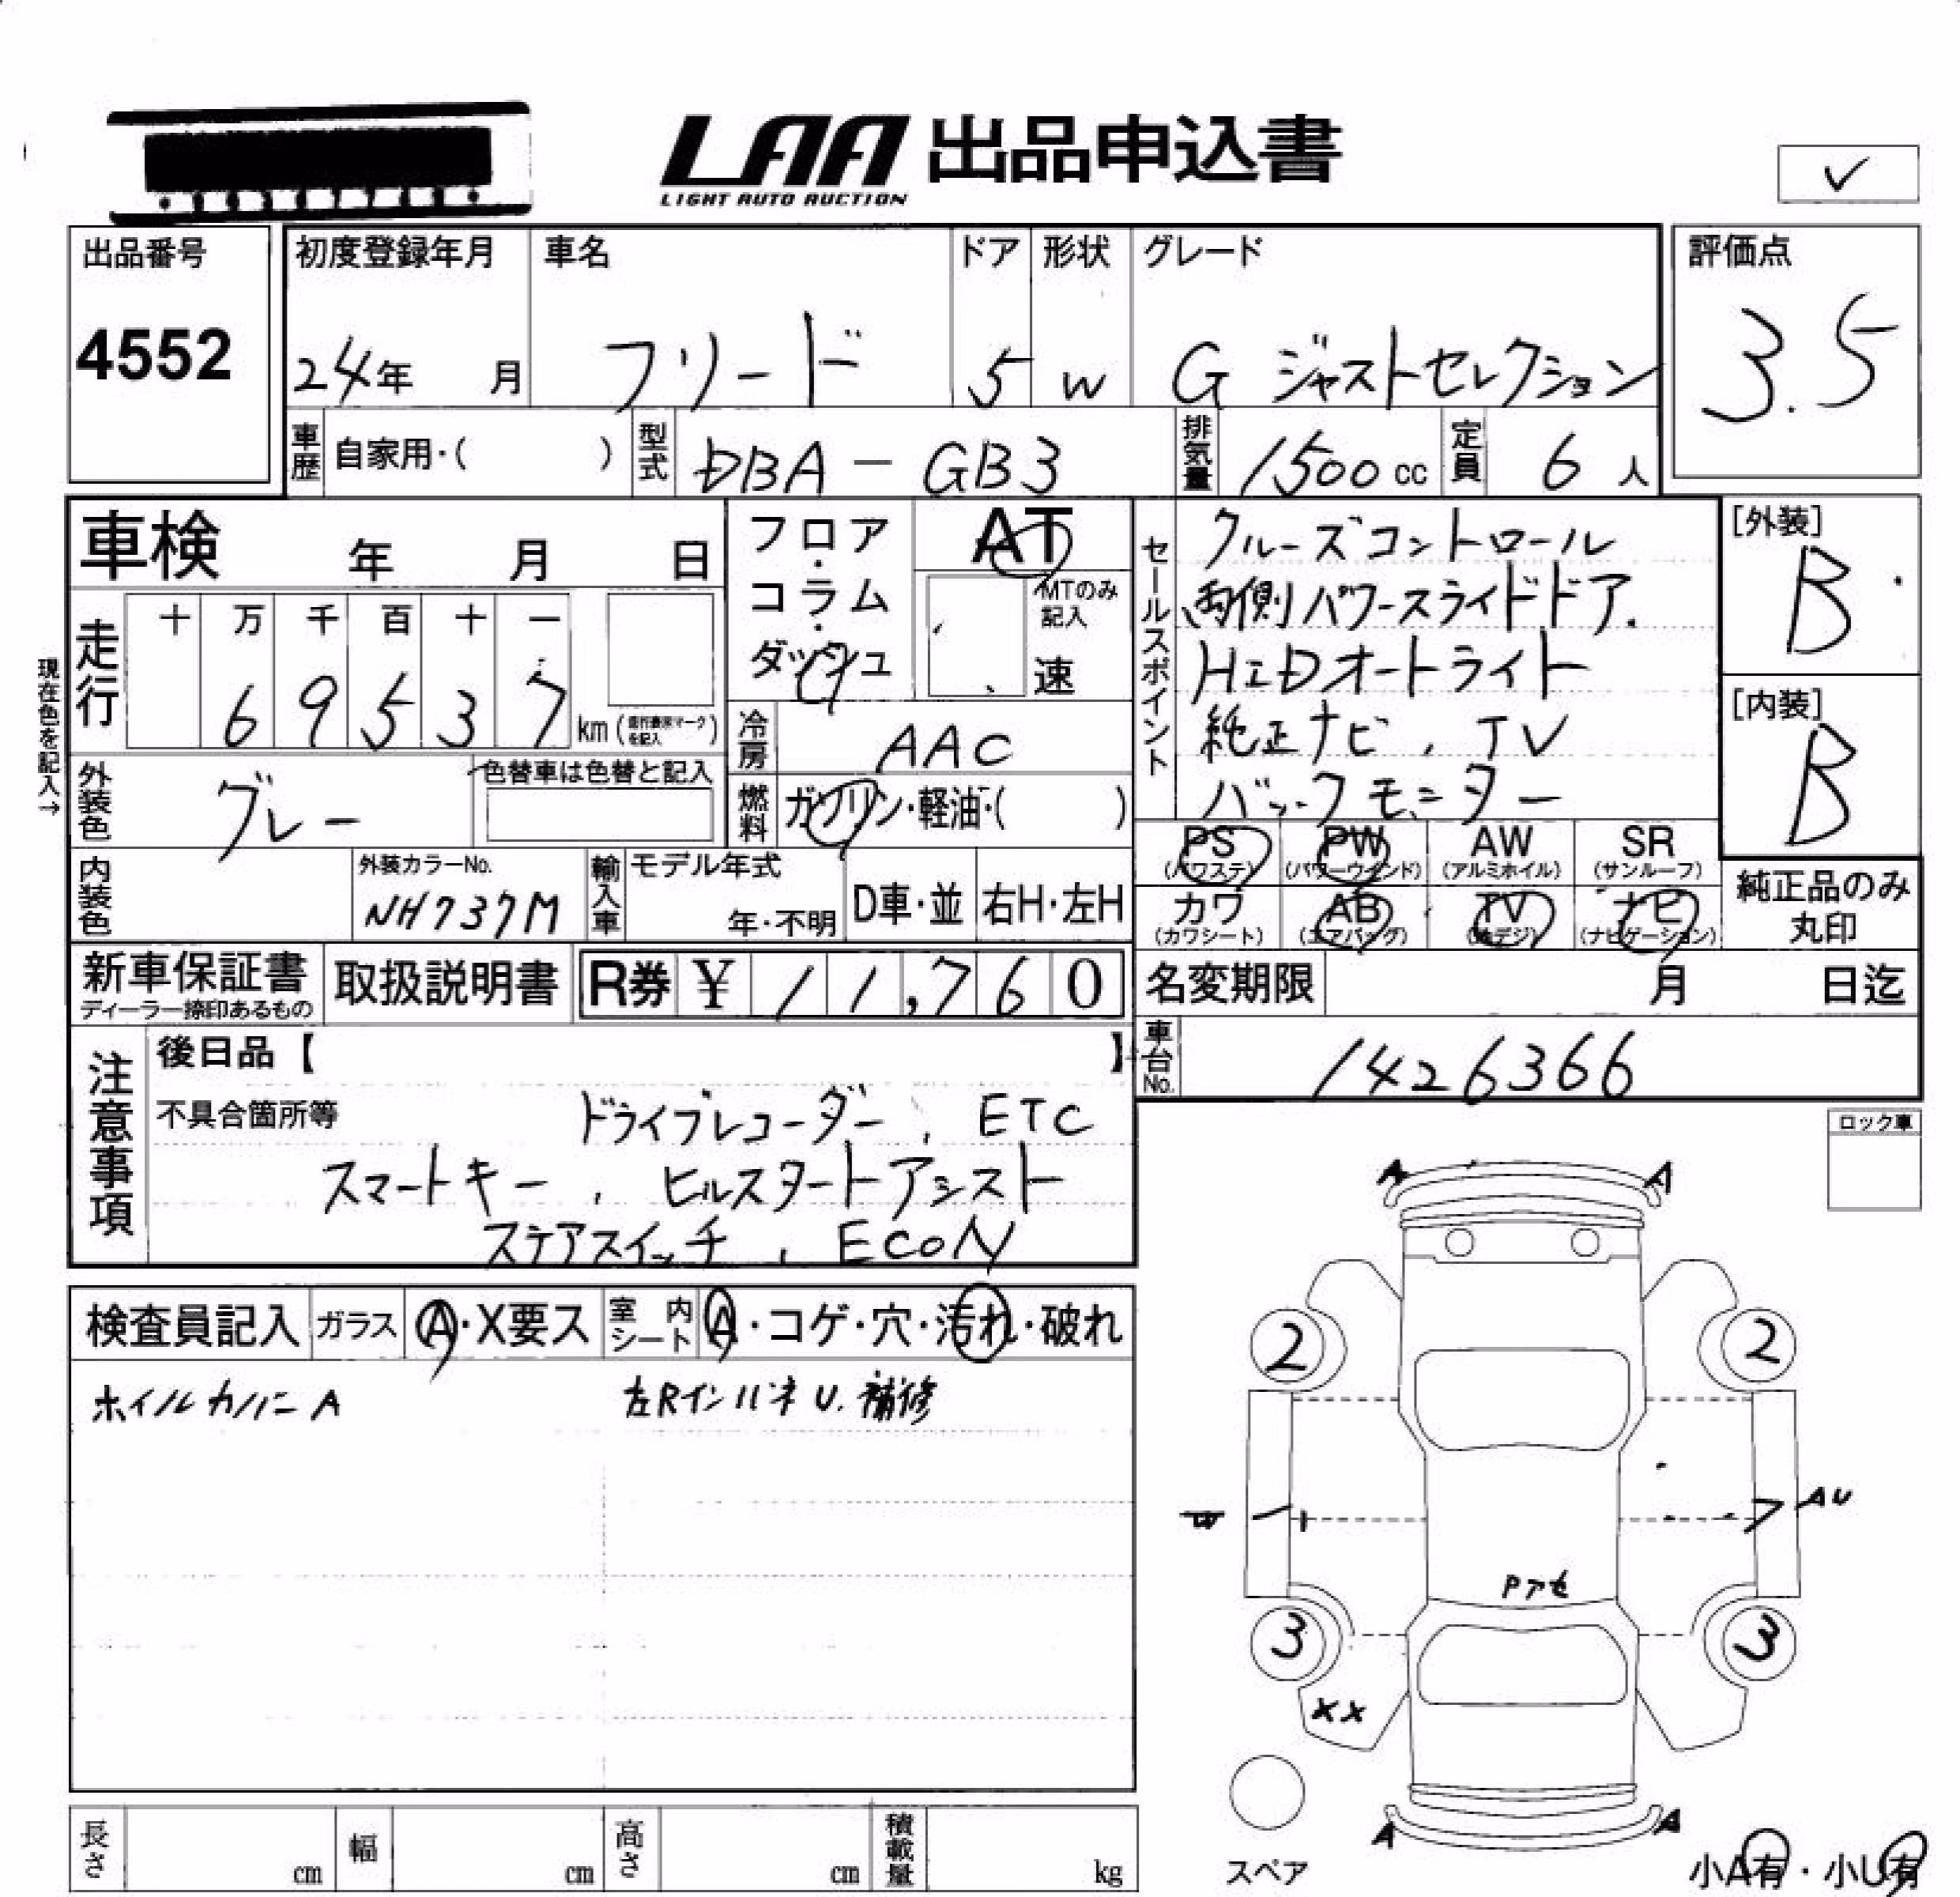 LAA 出品申込書
LIGHT AUTO AUCTION
✓
出品番号 初度登録年月 車名 ドア 形状 グレード 評価点
4552 24年 月 フリード 5 W G ジャストセレクション 3.5
車歴 自家用・( ) 型式 DBA-GB3 排気量 1500cc 定員 6人
車検 年 月 日
フロア・コラム・ダッシュ
AT
MTのみ記入
速
セールスポイント
クルーズコントロール
両側パワースライドドア.
HIDオートライト
純正ナビ、TV
バックモニター
[外装]
B
[内装]
B
現在色を記入→
走行 十 万 千 百 十 一
69537 km (走行表示マークを記入)
冷房 AAC
外装色 グレー 色替車は色替と記入
燃料 ガソリン・軽油・( )
PS PW AW SR
(パワステ) (パワーウインド) (アルミホイル) (サンルーフ)
カワ AB TV ナビ
(カワシート) (エアバッグ) (地デジ) (ナビゲーション)
純正品のみ
丸印
内装色 外装カラーNo. 輸入車 モデル年式
NH737M 年・不明 D車・並 右H・左H
新車保証書 取扱説明書 R券 ¥ 11,760
ディーラー捺印あるもの
名変期限 月 日迄
車台No. 1426366
注意事項
後日品【 】
不具合箇所等 ドライブレコーダー、ETC
スマートキー、ヒルスタートアシスト
ステアスイッチ、ECON
ロック車
検査員記入 ガラス A・X要ス 室内シート A・コゲ・穴・汚れ・破れ
ホイルカバー A 左Rインパネ U. 補修
A A
2 2
W AU
Pアセ
3 3
XX
A A
スペア
小A有・小U有
長さ cm 幅 cm 高さ cm 積載量 kg